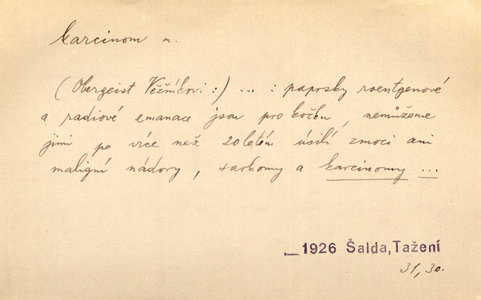 Karcinom m.
(Obergeist Věčníkovi:) ... : paprsky roentgenové
a radiové emanace jsou pro kočku, nemůžeme
jimi po více než 20letém úsilí zmoci ani
maligní nádory, sarkomy a karcinomy ...
_ 1926 Šalda, Tažení
31, 30.